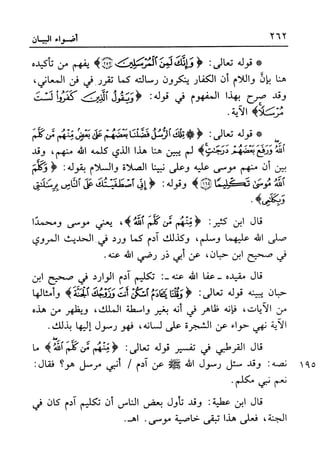 ٢٦٢
أضواء البيان
* قوله تعالى: ﴿وَإِنَّكَ لَمِنَ الْمُرْسَلِينَ ﴿٢٥٢﴾﴾ يفهم من تأكيده
هنا بإنَّ واللام أن الكفار ينكرون رسالته كما تقرر في فن المعاني،
وقد صرح بهذا المفهوم في قوله: ﴿وَيَقُولُ الَّذِينَ كَفَرُوا لَسْتَ
مُرْسَلًا﴾ الآية.
* قوله تعالى: ﴿* تِلْكَ الرُّسُلُ فَضَّلْنَا بَعْضَهُمْ عَلَىٰ بَعْضٍ مِنْهُمْ مَنْ كَلَّمَ
اللَّهُ وَرَفَعَ بَعْضَهُمْ دَرَجَاتٍ﴾ لم يبين هنا هذا الذي كلمه الله منهم، وقد
بين أن منهم موسى عليه وعلى نبينا الصلاة والسلام بقوله: ﴿وَكَلَّمَ
اللَّهُ مُوسَىٰ تَكْلِيمًا ﴿١٦٤﴾﴾ وقوله: ﴿إِنِّي اصْطَفَيْتُكَ عَلَى النَّاسِ بِرِسَالَاتِي
وَبِكَلَامِي﴾.
قال ابن كثير: ﴿مِنْهُمْ مَنْ كَلَّمَ اللَّهُ﴾، يعني موسى ومحمدًا
صلى الله عليهما وسلم، وكذلك آدم كما ورد في الحديث المروي
في صحيح ابن حبان، عن أبي ذر رضي الله عنه.
قال مقيده ـ عفا الله عنه ـ: تكليم آدم الوارد في صحيح ابن
حبان يبينه قوله تعالى: ﴿وَقُلْنَا يَا آدَمُ اسْكُنْ أَنْتَ وَزَوْجُكَ الْجَنَّةَ﴾ وأمثالها
من الآيات، فإنه ظاهر في أنه بغير واسطة الملك، ويظهر من هذه
الآية نهي حواء عن الشجرة على لسانه، فهو رسول إليها بذلك.
قال القرطبي في تفسير قوله تعالى: ﴿مِنْهُمْ مَنْ كَلَّمَ اللَّهُ﴾ ما
نصه: وقد سئل رسول الله ﷺ عن آدم / أنبي مرسل هو؟ فقال: ١٩٥
نعم نبي مكلم.
قال ابن عطية: وقد تأول بعض الناس أن تكليم آدم كان في
الجنة، فعلى هذا تبقى خاصية موسى. اهـ.